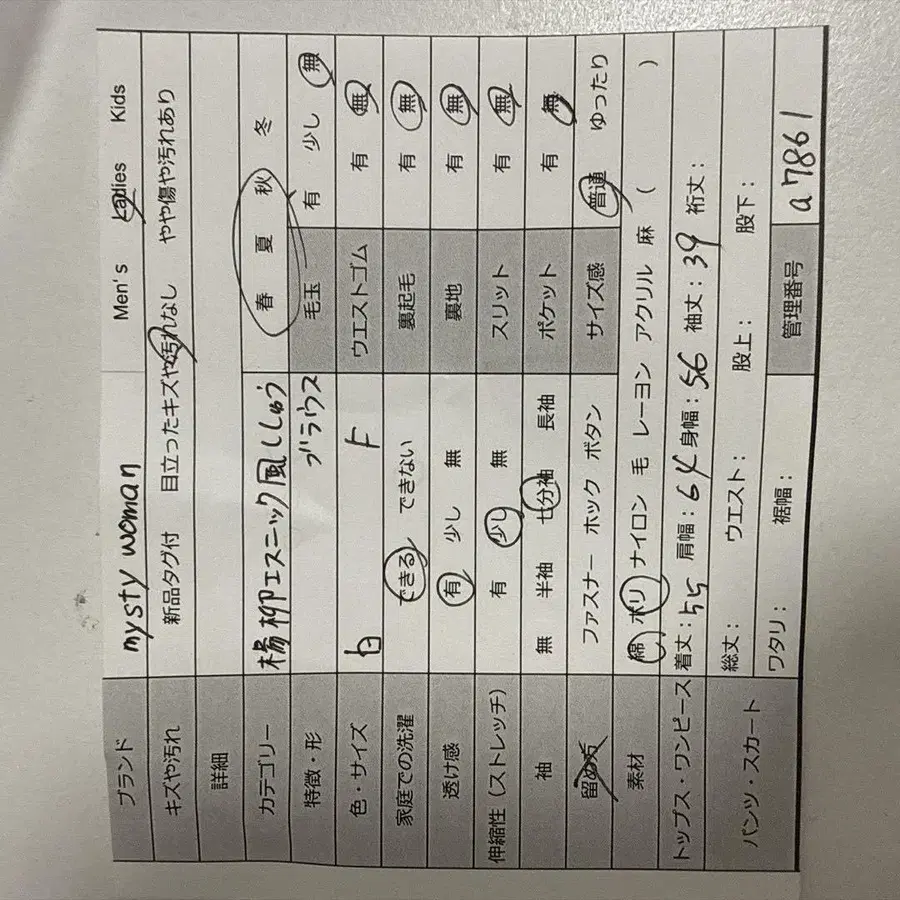 ブランド mysty woman Men's Ladies Kids
キズや汚れ 新品タグ付 目立ったキズや汚れなし やや傷や汚れあり
詳細
カテゴリー 楊柳エスニック風ししゅう 春 夏 秋 冬
特徴・形 ブラウス 毛玉 有 少し 無
色・サイズ 白 F ウエストゴム 有 無
家庭での洗濯 できる できない 裏起毛 有 無
透け感 有 少し 無 裏地 有 無
伸縮性(ストレッチ) 有 少し 無 スリット 有 無
袖 無 半袖 七分袖 長袖 ポケット 有 無
留め方 ファスナー ホック ボタン サイズ感 普通 ゆったり
素材 綿 ポリ ナイロン 毛 レーヨン アクリル 麻 ( )
トップス・ワンピース 着丈:55 肩幅:64 身幅:56 袖丈:39 裄丈:
パンツ・スカート 総丈: ウエスト: 股上: 股下:
ワタリ: 裾幅: 管理番号 a7861